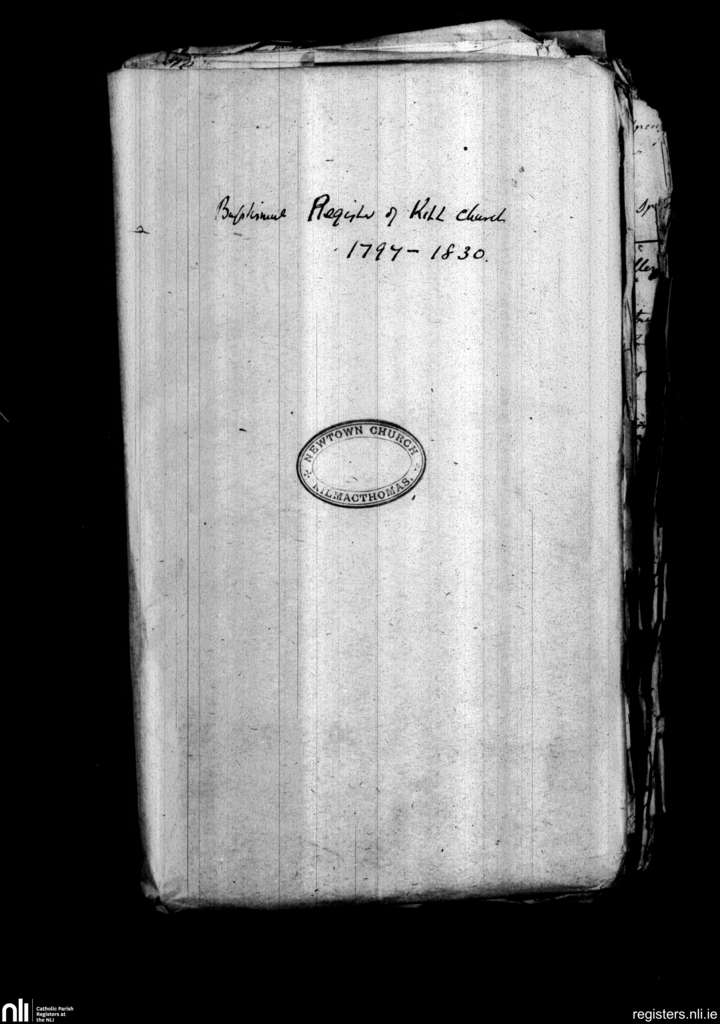 Baptismal Register of Kill Church
1797 - 1830.
NEWTOWN CHURCH
KILMACTHOMAS.
nli
Catholic Parish
Registers at
the NLI
registers.nli.ie